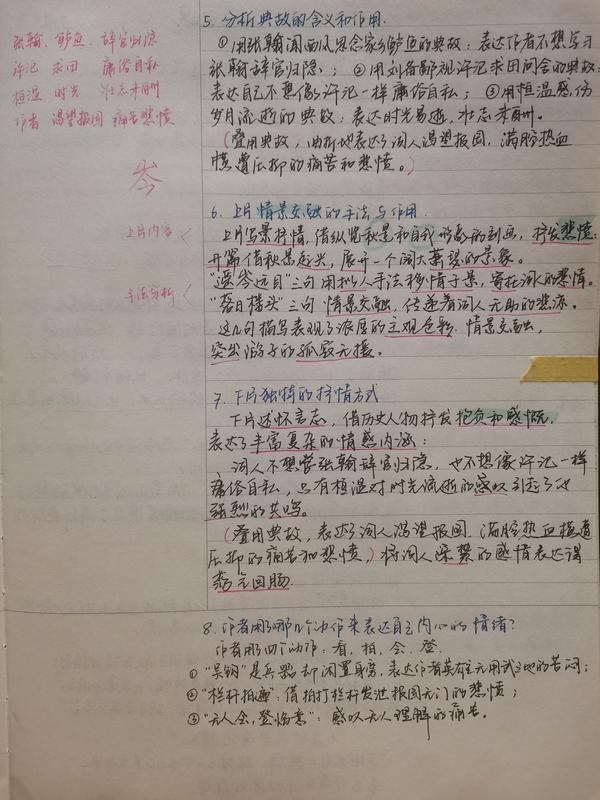 张翰、鲈鱼、辞官归隐
许汜 求田 庸俗自私
桓温 时光 壮志未酬
作者 渴望报国 痛苦悲愤
岑
上片内容
手法分析
5. 分析典故的含义和作用.
①用张翰闻西风思念家乡鲈鱼的典故：表达作者不想学习
张翰辞官归隐；②用刘备鄙视许汜求田问舍的典故：
表达自己不想像许汜一样庸俗自私；③用桓温感伤
岁月流逝的典故：表达时光易逝，壮志未酬。
(叠用典故，曲折地表达了词人渴望报国，满腔热血
惨遭压抑的痛苦和悲愤。)
6. 上片情景交融的手法与作用.
上片写景抒情，借纵览秋景和自我形象的刻画，抒发悲愤：
开篇借秋景起兴，展开一个阔大萧瑟的景象。
"遥岑远目"三句用拟人手法移情于景，寄托词人的悲情。
"落日楼头"三句情景交融，传递着词人无助的悲凉。
这几句描写表现了浓厚的主观色彩.情景交融，
突出游子的孤寂无援。
7. 下片独特的抒情方式
下片述怀言志，借历史人物抒发抱负和感慨，
表达了丰富复杂的情感内涵：
词人不想学张翰辞官归隐，也不想像许汜一样
庸俗自私，只有桓温对时光流逝的感叹引起了他
强烈的共鸣。
(叠用典故，表达了词人渴望报国.满腔热血惨遭
压抑的痛苦和悲愤，)将词人深蕴的感情表达得
荡气回肠.
8. 作者用了哪几个动作来表达自己内心的情绪?
作者用四个动作：看，拍，会，登.
①"吴钩"是兵器却闲置身旁，表达作者英雄无用武之地的苦闷；
②"栏杆拍遍"：借拍打栏杆发泄报国无门的悲愤；
③"无人会，登临意"：感叹无人理解的痛苦。